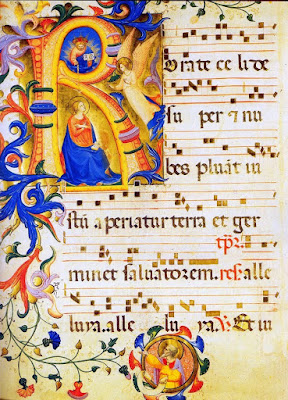 Rorate ce li de
su per et nu
bes pluāt iu
stū aperiatur terra et ger
minet saluatorem. alle
luya. alle lu ya. Et iu